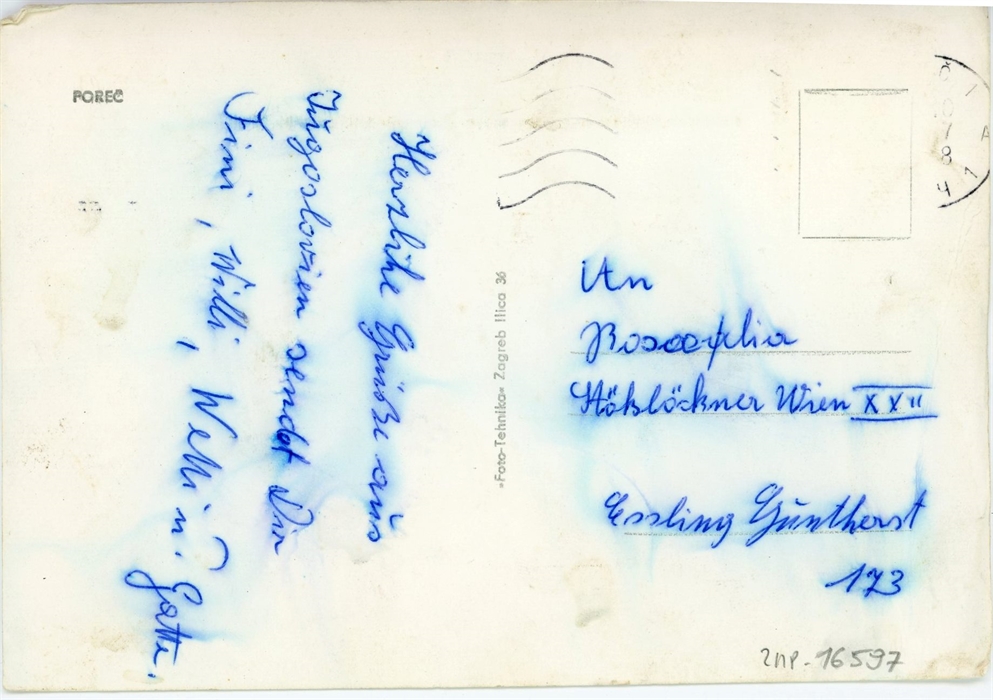 POREČ
Herzliche Grüße aus
Jugoslovien sendet Dir
Fini, Willi, Welli u.
»Foto-Tehnika« Zagreb Ilica 36
An
Wien XXII
Essling Güntherst
173
ZMP-16597